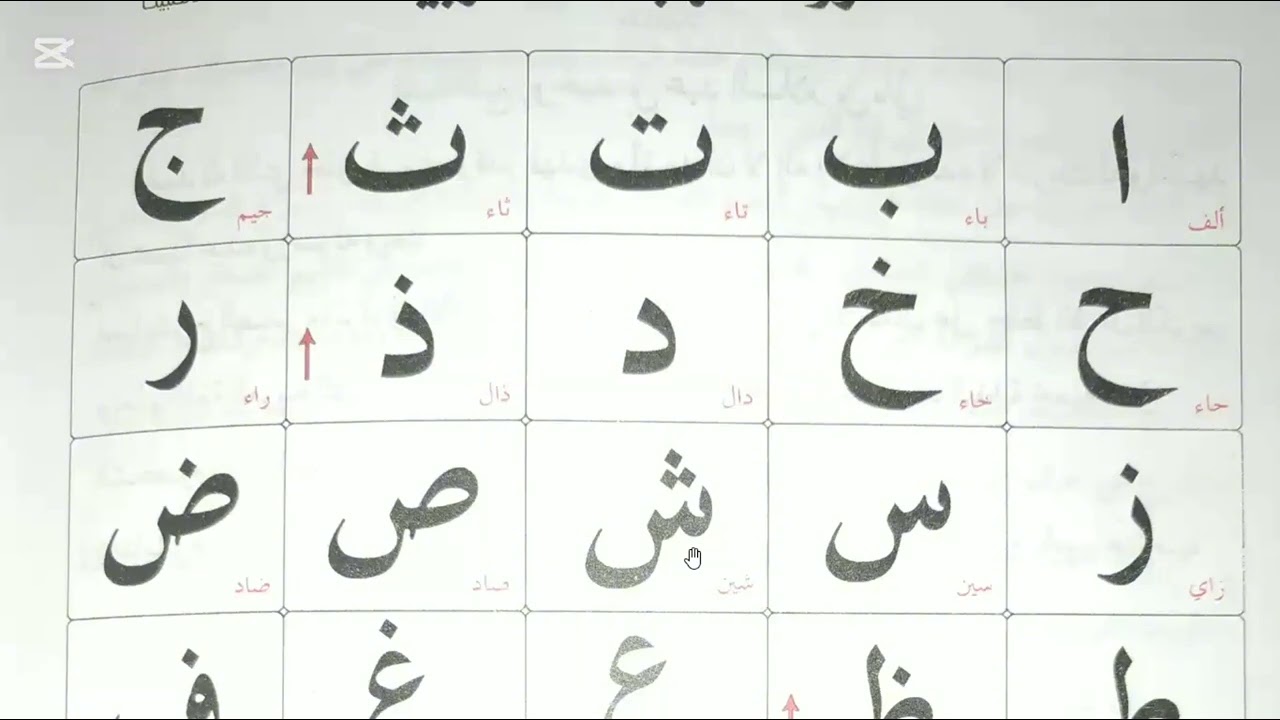 ا ب ت ث ج
ألف باء تاء ثاء جيم
ح خ د ذ ر
حاء خاء دال ذال راء
ز س ش ص ض
زاي سين شين صاد ضاد
ط ظ ع غ ف